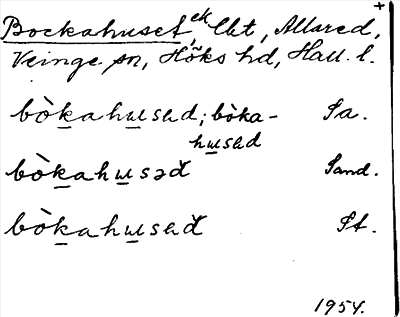 +
Bockahuset, ek lht, Allared,
Veinge sn, Höks hd, Hall. l.
bòk̲ahu̲sad; bòka- Sa.
hu̲sad
bòk̲ahu̲səđ Sand.
bòk̲ahu̲sađ St.
1954.